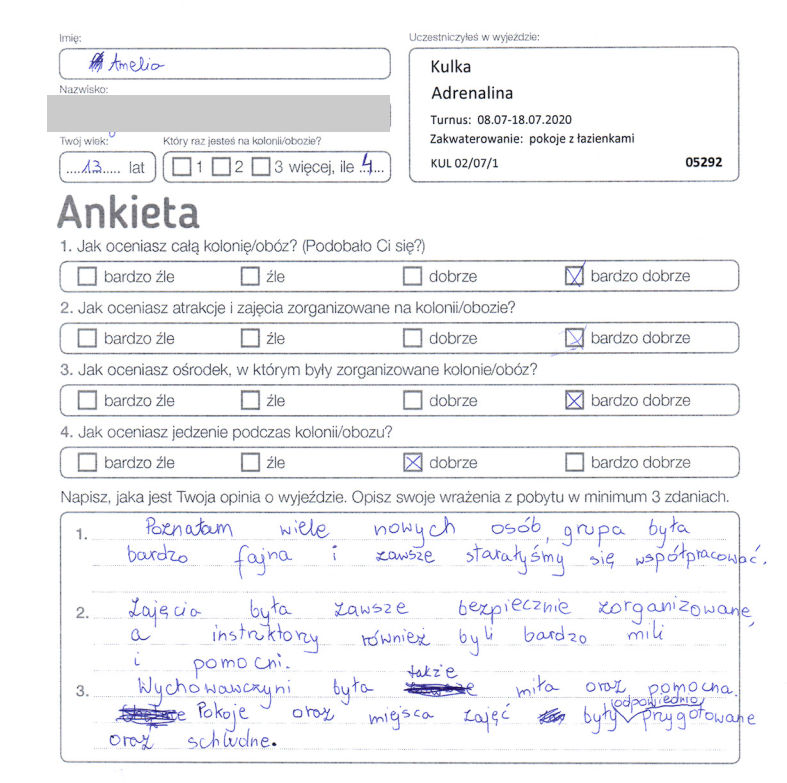 Imię:
Amelia
Nazwisko:
Twój wiek:
....13..... lat
Który raz jesteś na kolonii/obozie?
1 2 3 więcej, ile ..4...
Uczestniczyłeś w wyjeździe:
Kulka
Adrenalina
Turnus: 08.07-18.07.2020
Zakwaterowanie: pokoje z łazienkami
KUL 02/07/1 05292
Ankieta
1. Jak oceniasz całą kolonię/obóz? (Podobało Ci się?)
bardzo źle źle dobrze bardzo dobrze
2. Jak oceniasz atrakcje i zajęcia zorganizowane na kolonii/obozie?
bardzo źle źle dobrze bardzo dobrze
3. Jak oceniasz ośrodek, w którym były zorganizowane kolonie/obóz?
bardzo źle źle dobrze bardzo dobrze
4. Jak oceniasz jedzenie podczas kolonii/obozu?
bardzo źle źle dobrze bardzo dobrze
Napisz, jaka jest Twoja opinia o wyjeździe. Opisz swoje wrażenia z pobytu w minimum 3 zdaniach.
1. Poznałam wiele nowych osób, grupa była
bardzo fajna i zawsze starałyśmy się współpracować.
2. Zajęcia była zawsze bezpiecznie zorganizowane,
a instruktorzy również byli bardzo mili
i pomocni.
3. Wychowawczyni była także miła oraz pomocna.
Pokoje oraz miejsca zajęć były odpowiednio przygotowane
oraz schludne.